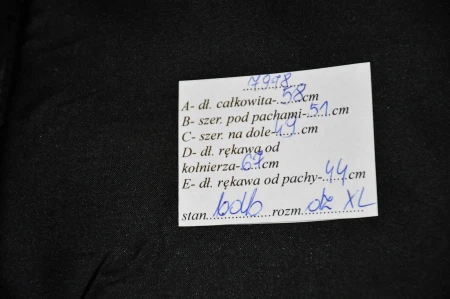 7998
A- dł. całkowita-58cm
B- szer. pod pachami-51cm
C- szer. na dole-49cm
D- dł. rękawa od
kołnierza-67cm
E- dł. rękawa od pachy-44cm
stan bdb rozm. dz XL